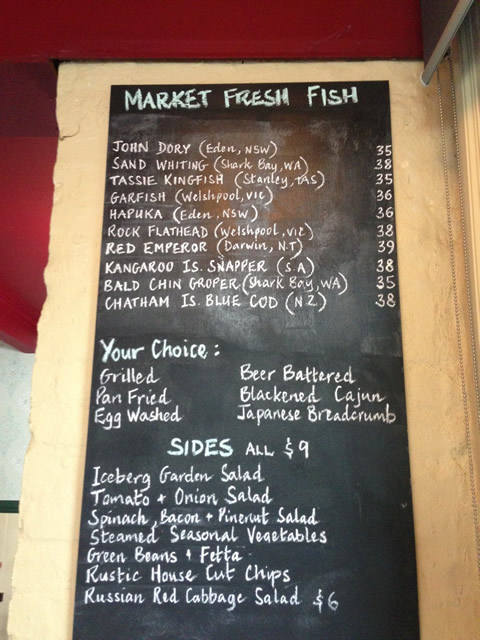 MARKET FRESH FISH
JOHN DORY (Eden, NSW) 35
SAND WHITING (Shark Bay, WA) 38
TASSIE KINGFISH (Stanley, TAS) 35
GARFISH (Welshpool, VIC) 36
HAPUKA (Eden, NSW) 36
ROCK FLATHEAD (Welshpool, VIC) 38
RED EMPEROR (Darwin, N.T) 39
KANGAROO IS. SNAPPER (S.A) 38
BALD CHIN GROPER (Shark Bay, WA) 35
CHATHAM IS. BLUE COD (NZ) 38
Your Choice:
Grilled Beer Battered
Pan Fried Blackened Cajun
Egg Washed Japanese Breadcrumb
SIDES ALL $9
Iceberg Garden Salad
Tomato + Onion Salad
Spinach, Bacon + Pinenut Salad
Steamed Seasonal Vegetables
Green Beans + Fetta
Rustic House Cut Chips
Russian Red Cabbage Salad $6